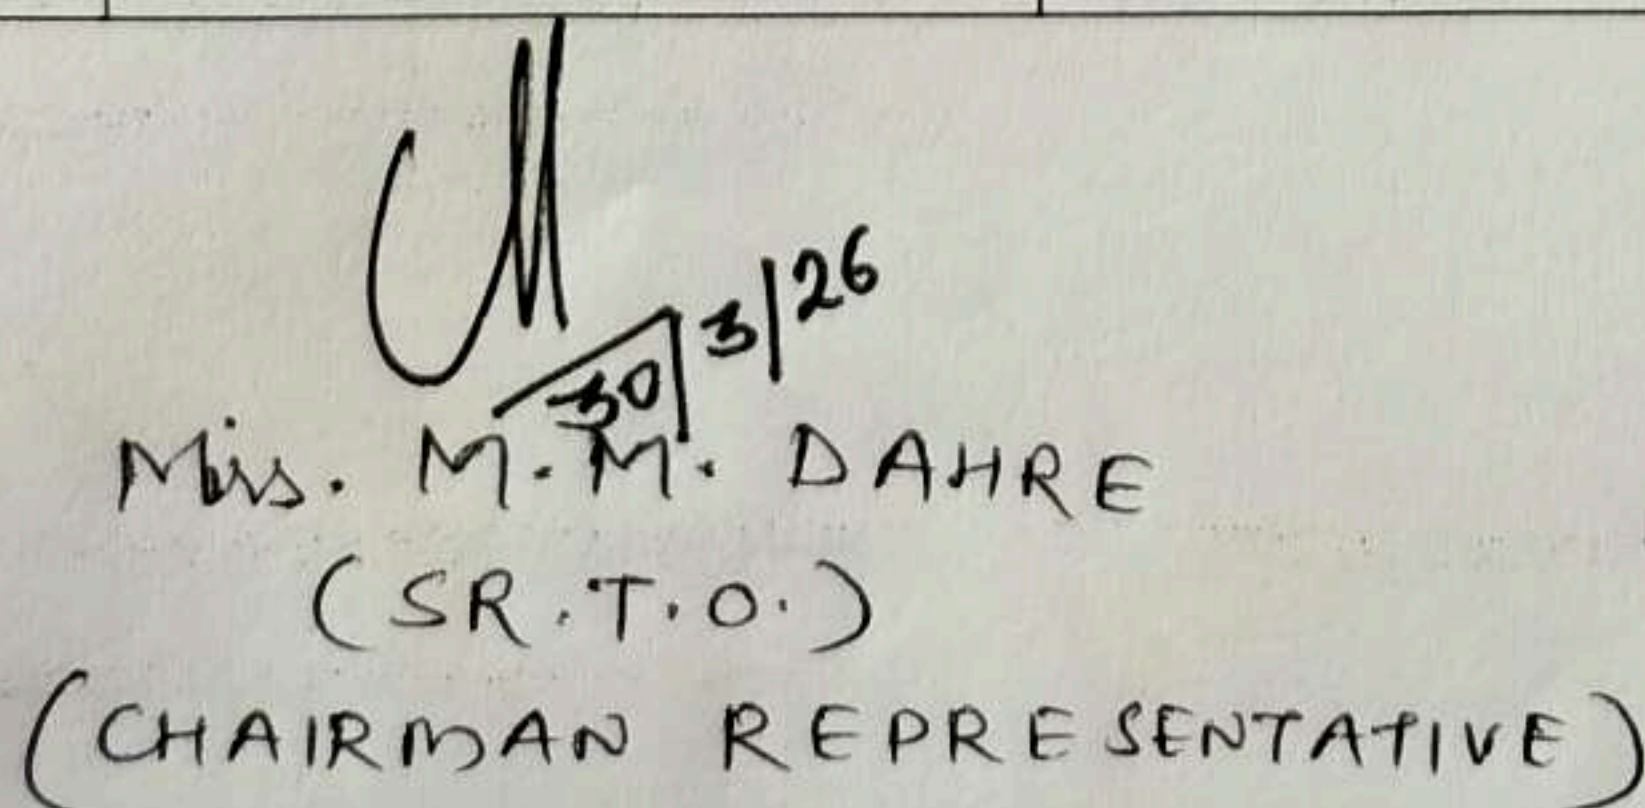 30/3/26
Miss. M. M. DAHRE
(SR. T. O.)
(CHAIRMAN REPRESENTATIVE)